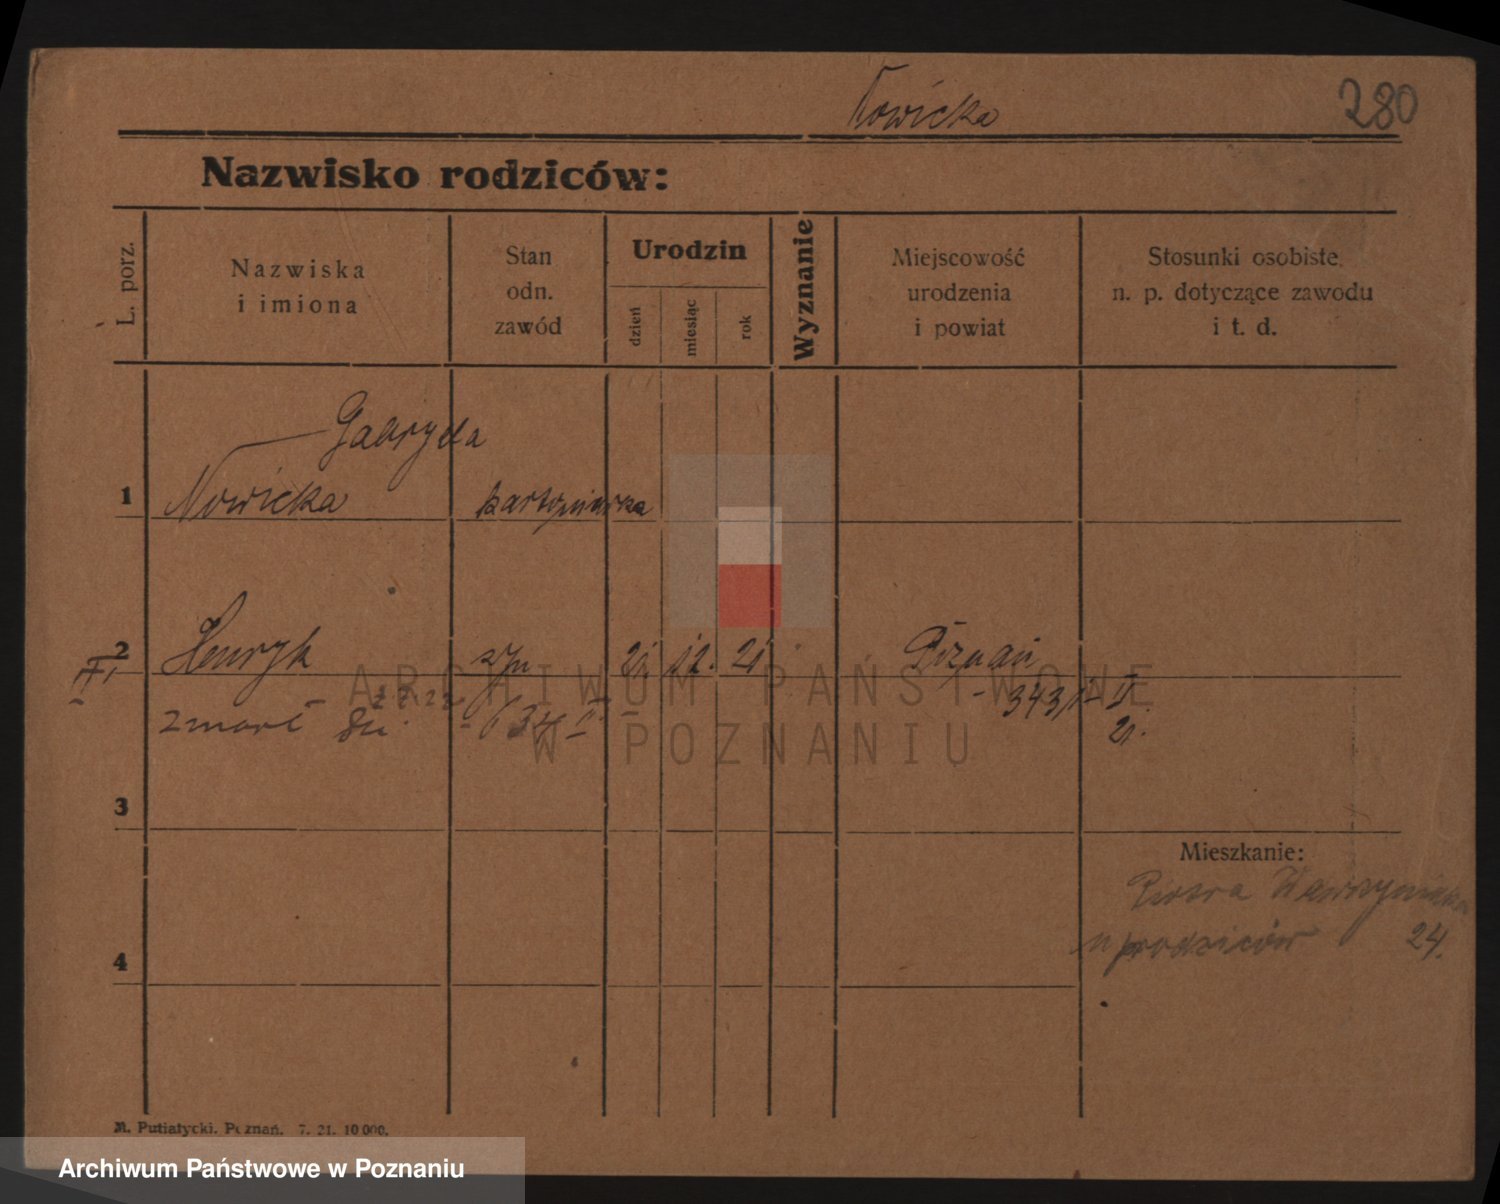 Nowicka
280
Nazwisko rodziców:
L. porz.
Nazwiska
i imiona
Stan
odn.
zawód
Urodzin
dzień
miesiąc
rok
Wyznanie
Miejscowość
urodzenia
i powiat
Stosunki osobiste
n. p. dotyczące zawodu
i t. d.
Gabryela
1 Nowicka kartoniarka
2 Henryk syn 21. 12. 21 Poznań
zmarł
3
Mieszkanie:
Piotra Wawrzyniaka
24.
u rodziców
4
M. Putiatycki. Poznań. 7. 21. 10 000.
ARCHIWUM PAŃSTWOWE
W POZNANIU
Archiwum Państwowe w Poznaniu